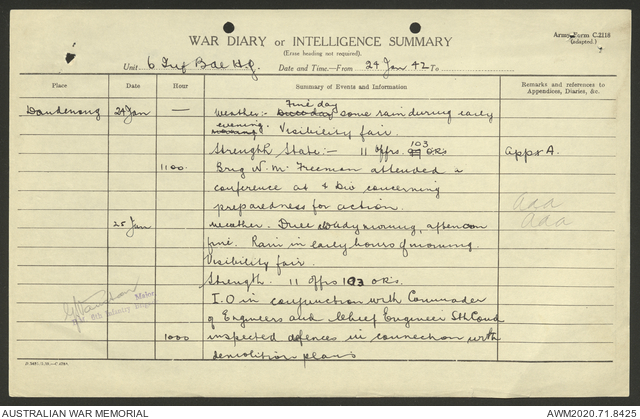 Army Form C.2118
(adapted.)
WAR DIARY or INTELLIGENCE SUMMARY
(Erase heading not required).
Unit 6 Inf Bde H.Q. Date and Time.—From 24 Jan 42 To
Place Date Hour Summary of Events and Information Remarks and references to Appendices, Diaries, &c.
Dandenong 24 Jan — Weather:- Fine day some rain during early
evening. Visibility fair.
Strength State:- 11 offrs 103 ORs appx A.
1100 Brig W. M. Freeman attended a
conference at 4 Div concerning
preparedness for action.
25 Jan Weather. Dull cloudy morning, afternoon
fine. Rain in early hours of morning.
Visibility fair.
Strength. 11 offrs 103 ORs.
I.O in conjunction with Commander
of Engineers and Chief Engineer Sth Comd
1000 inspected defences in connection with
demolition plans
Major
6th Infantry
AUSTRALIAN WAR MEMORIAL AWM2020.71.8425